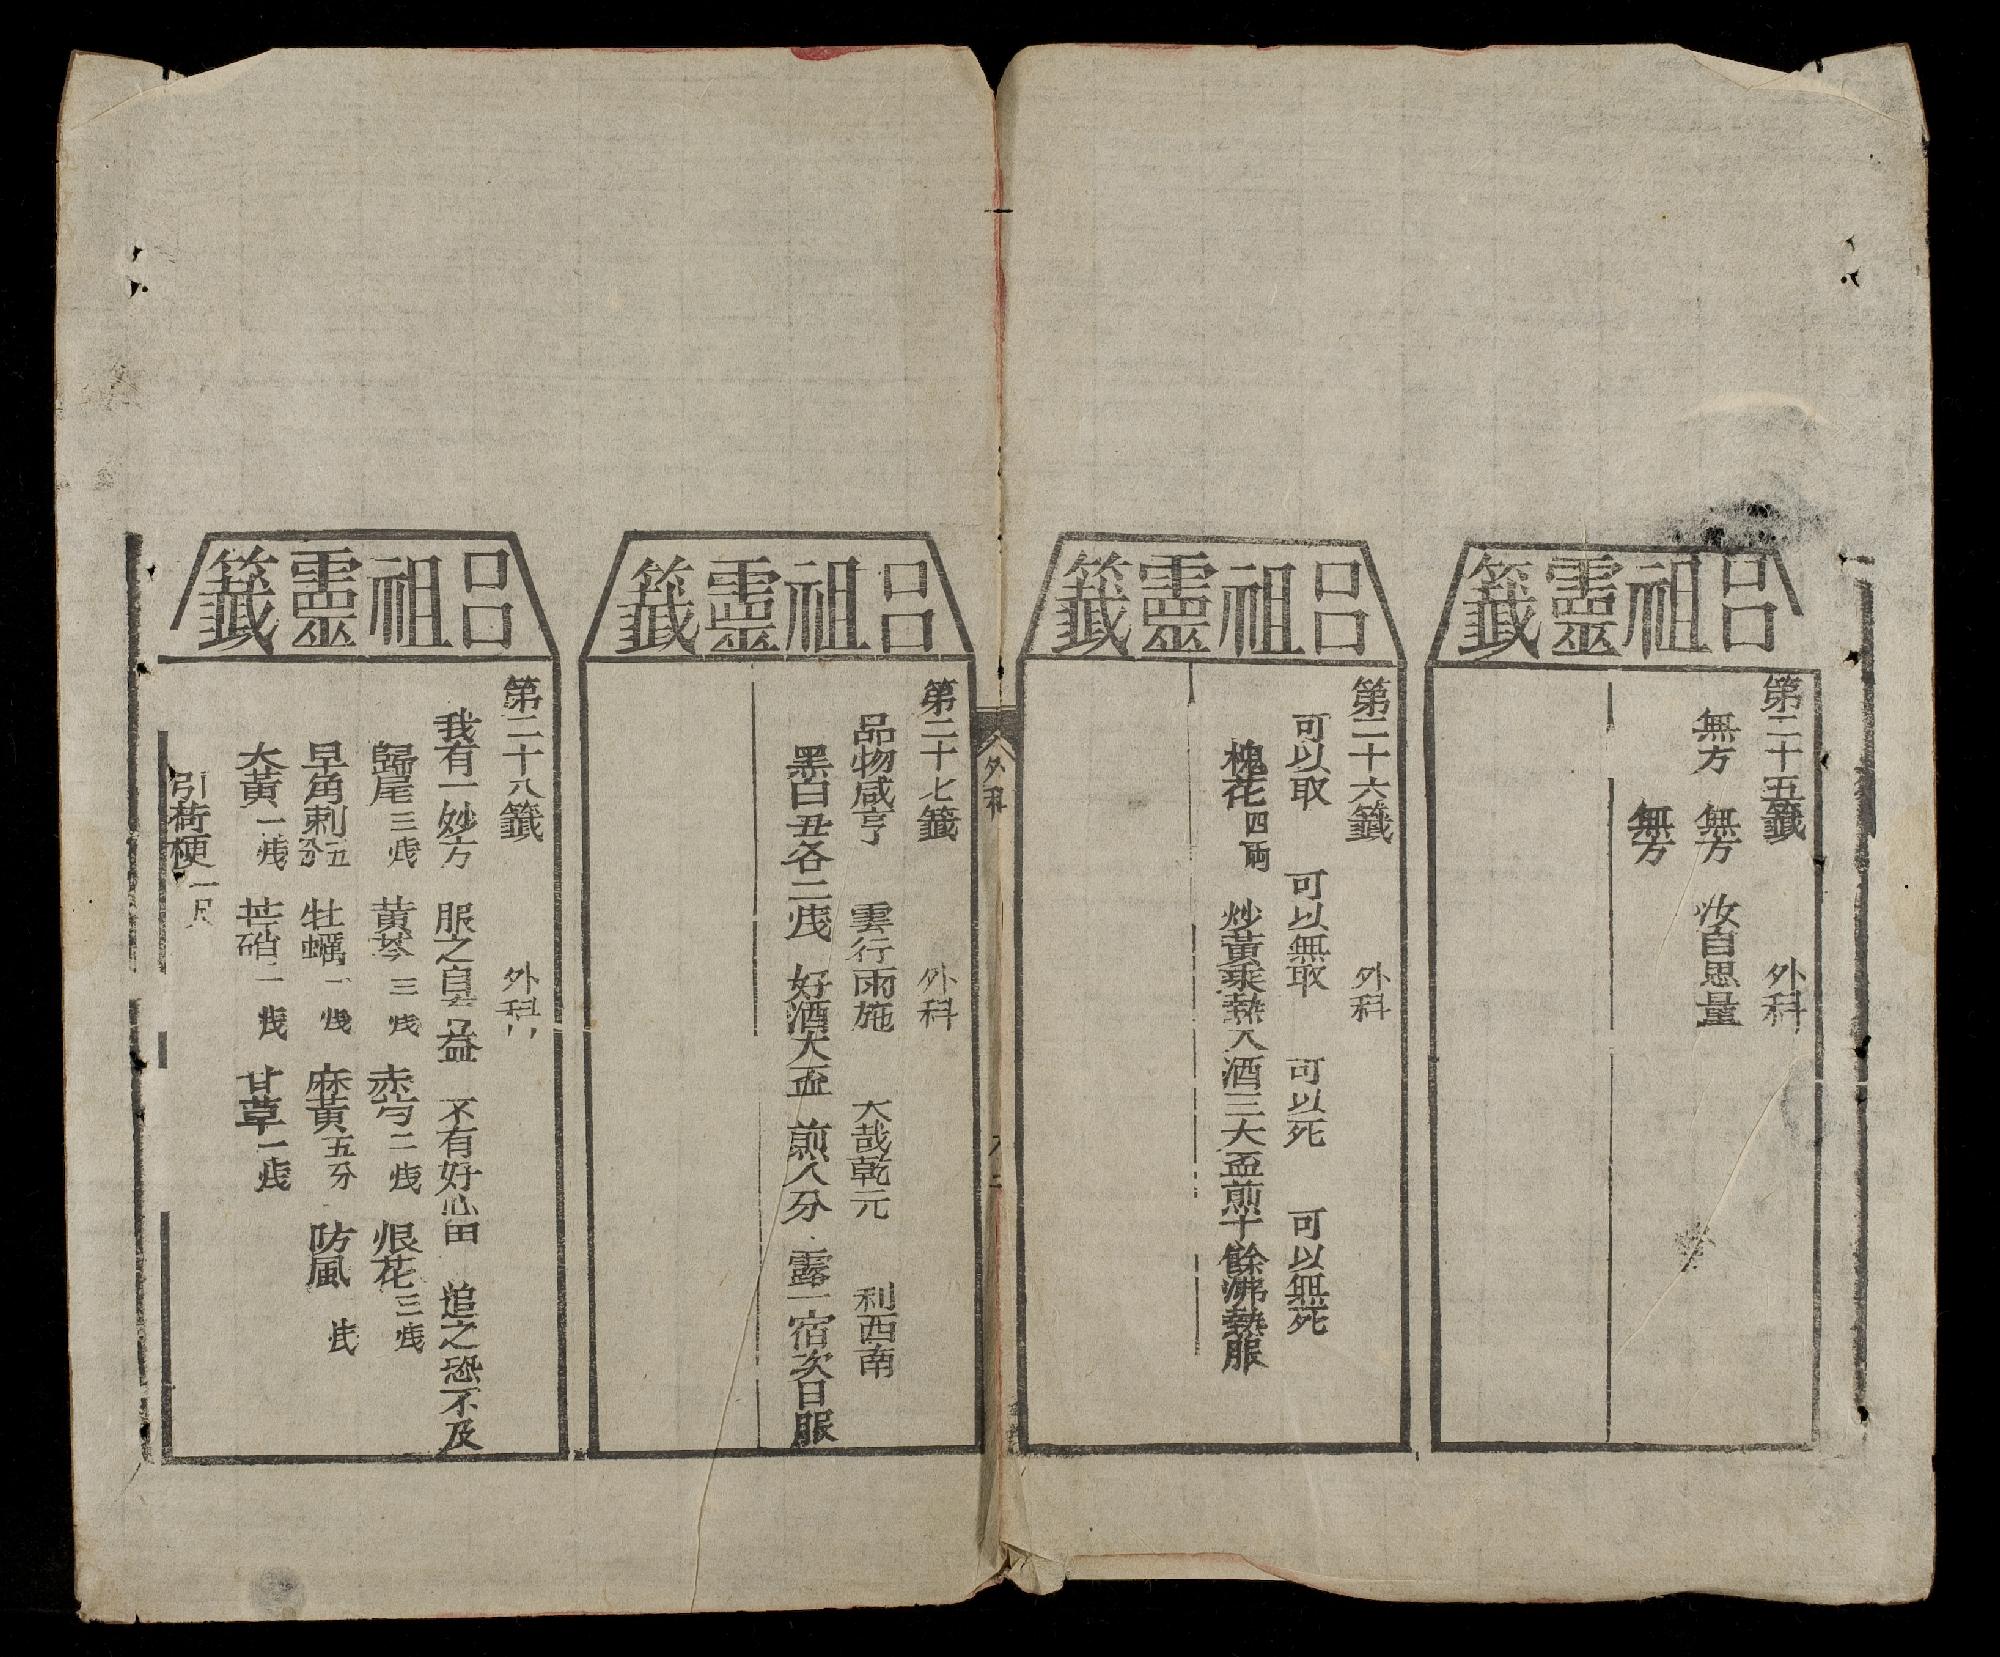 呂祖靈籤
第二十五籤 外科
無方 無方 汝自思量
無方
呂祖靈籤
第二十六籤 外科
可以取 可以無取 可以死 可以無死
槐花四兩 炒黃乘熱入酒三大盃煎十餘沸熱服
外科
呂祖靈籤
第二十七籤 外科
品物咸亨 雲行雨施 大哉乾元 利西南
黑白丑各二戔 好酒大盃 煎八分 露一宿次日服
呂祖靈籤
第二十八籤 外科
我有一妙方 服之自有益 不有好心田 追之恐不及
歸尾三戔 黃芩三戔 赤芍二戔 佷花三戔
早角刺五分 牡蠣一戔 麻黃五分 防風 戔
大黃一戔 芒硝二戔 甘草一戔
引荷梗一尺